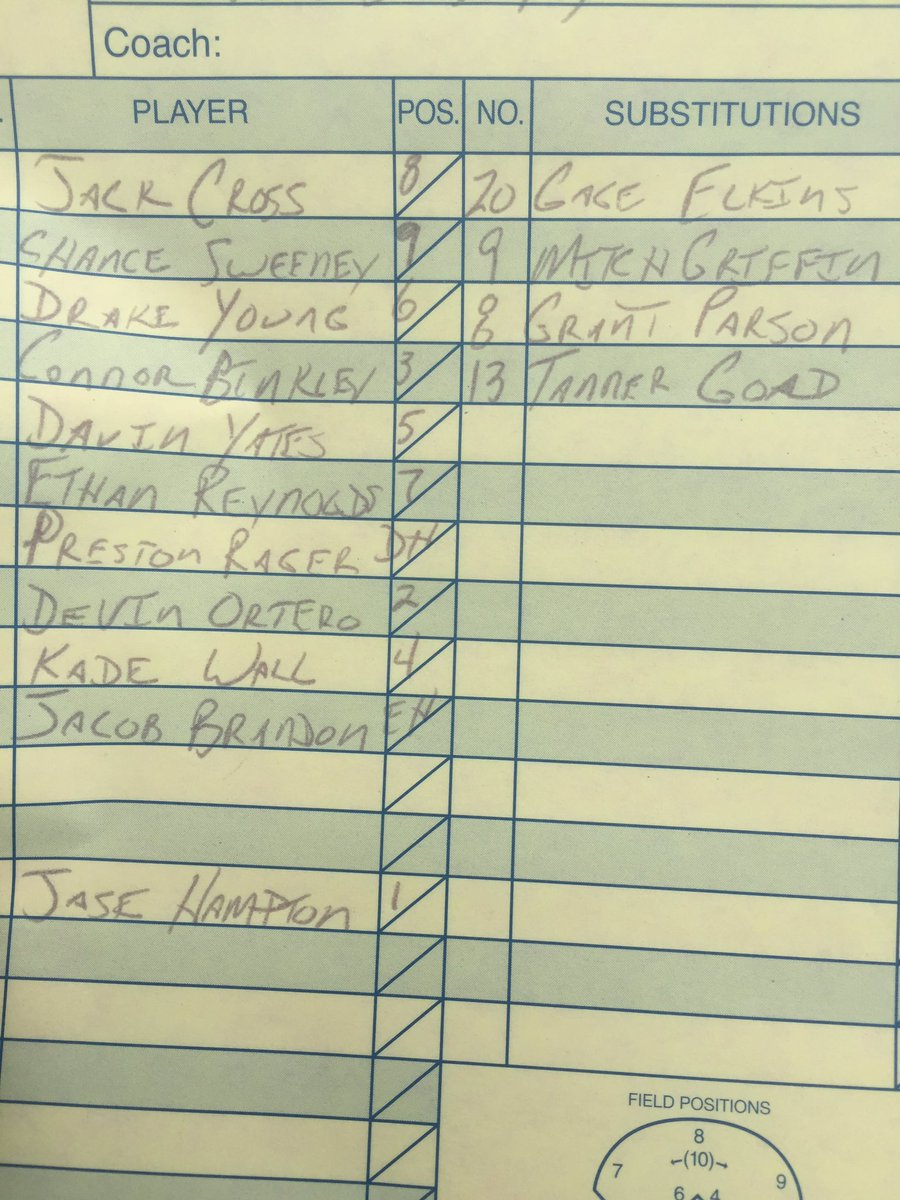 Coach:
PLAYER POS. NO. SUBSTITUTIONS
JACK CROSS 8 20 GAGE ELKINS
CHANCE SWEENEY 9 9 MITCH GRIFFIN
DRAKE YOUNG 6 8 GRANT PARSON
CONNOR BINKLEY 3 13 TANNER GOAD
DAVIN YATES 5
ETHAN REYNOLDS 7
PRESTON RAGER DH
DEVIN ORTERO 2
KADE WALL 4
JACOB BRANDON EH
JASE HAMPTON 1
FIELD POSITIONS
8
7 (10) 9
6 4